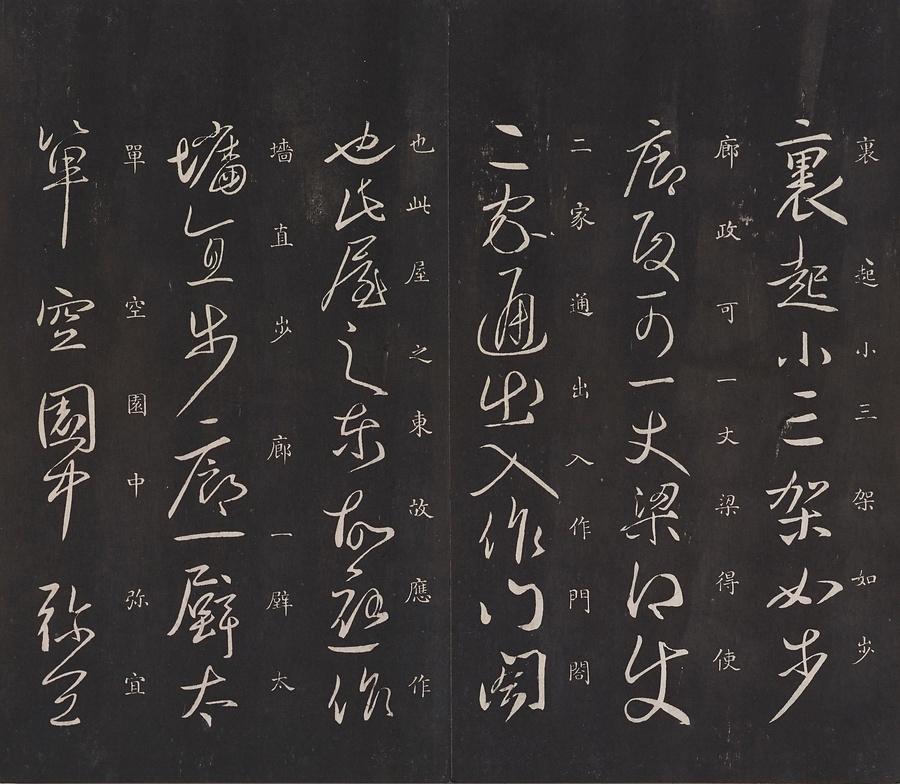 裏起小三架如步
裏起小三架如步
廊政可一丈梁得使
廊政可一丈梁得使
二家通出入作門閤
二家通出入作門閤
也此屋之東故應作
也此屋之東故應作
墻直步廊一壁太
墻直步廊一壁太
單空園中弥宜
單空園中弥宜